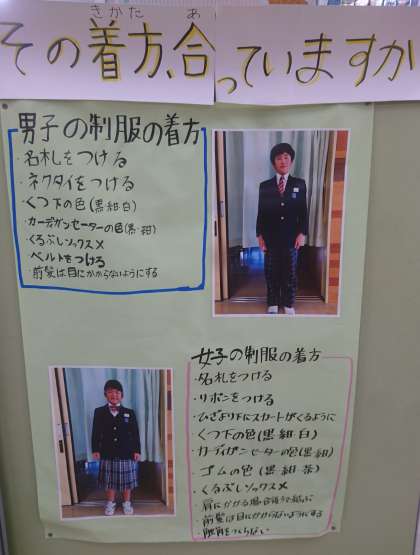 きかた あ
その着方、合っていますか
男子の制服の着方
・名札をつける
・ネクタイをつける
・くつ下の色(黒紺白)
・カーディガンセーターの色(黒・紺)
・くるぶしソックス✕
・ベルトをつける
・前髪は目にかからないようにする
女子の制服の着方
・名札をつける
・リボンをつける
・ひざより下にスカートがくるように
・くつ下の色(黒 紺 白)
・カーディガンセーターの色(黒 紺)
・ゴムの色(黒 紺 茶)
・くるぶしソックス✕
・肩にかかる場合
・前髪は目にかからないようにする